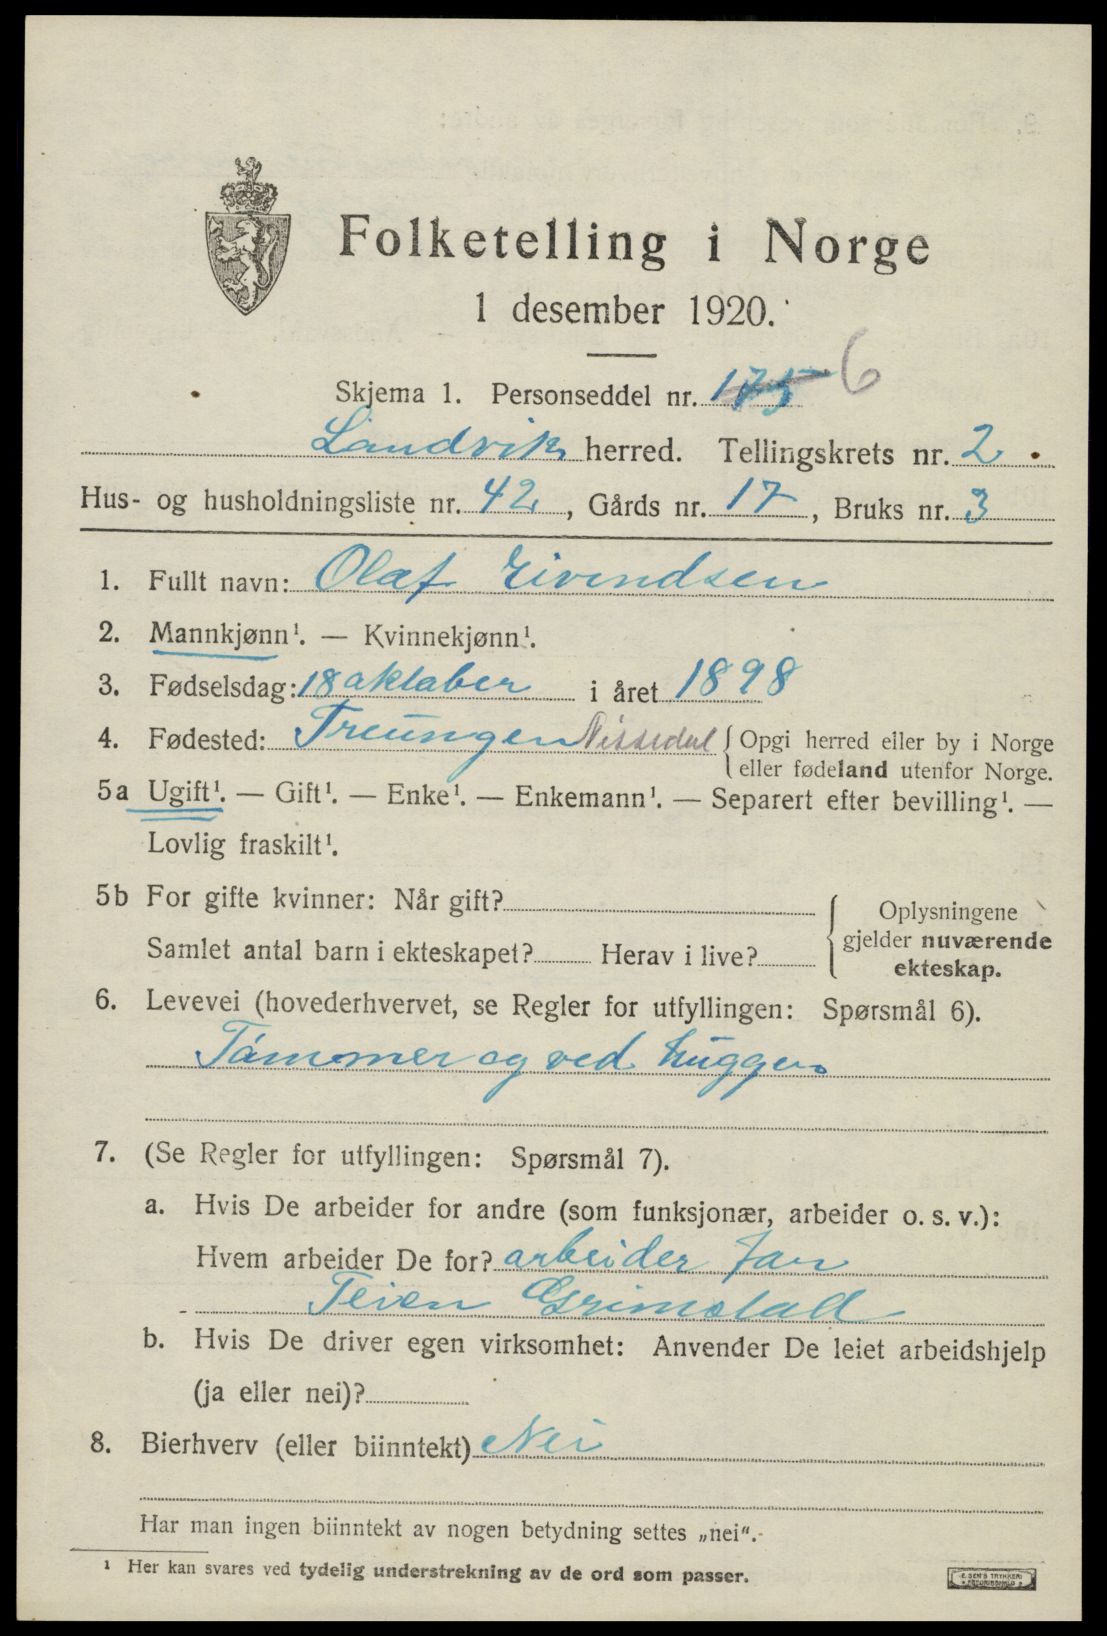 Folketelling i Norge
1 desember 1920.
Skjema 1. Personseddel nr. 175 6
Landvik herred. Tellingskrets nr. 2
Hus- og husholdningsliste nr. 42, Gårds nr. 17, Bruks nr. 3
1. Fullt navn: Olaf Eivendsen
2. Mannkjønn¹. — Kvinnekjønn¹.
3. Fødselsdag: 18 oktober i året 1898
4. Fødested: Treungen Nissedal { Opgi herred eller by i Norge
eller fødeland utenfor Norge.
5a Ugift¹. — Gift¹. — Enke¹. — Enkemann¹. — Separert efter bevilling¹. —
Lovlig fraskilt¹.
5b For gifte kvinner: Når gift?
Samlet antal barn i ekteskapet? Herav i live?
Oplysningene
gjelder nuværende
ekteskap.
6. Levevei (hovederhvervet, se Regler for utfyllingen: Spørsmål 6).
Tømmer og ved hugger
7. (Se Regler for utfyllingen: Spørsmål 7).
a. Hvis De arbeider for andre (som funksjonær, arbeider o. s. v.):
Hvem arbeider De for? arbeider for
Teien Grimstad
b. Hvis De driver egen virksomhet: Anvender De leiet arbeidshjelp
(ja eller nei)?
8. Bierhverv (eller biinntekt) Nei
Har man ingen biinntekt av nogen betydning settes „nei".
¹ Her kan svares ved tydelig understrekning av de ord som passer.